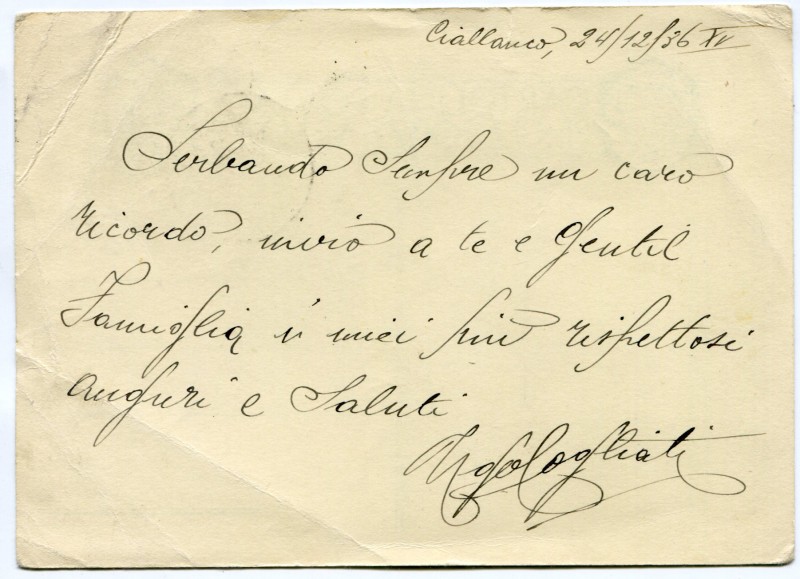 Ciallanco, 24/12/36 XV
Serbando Sempre un caro
ricordo, invio a te e Gentil
Famiglia i miei più rispettosi
auguri e Saluti